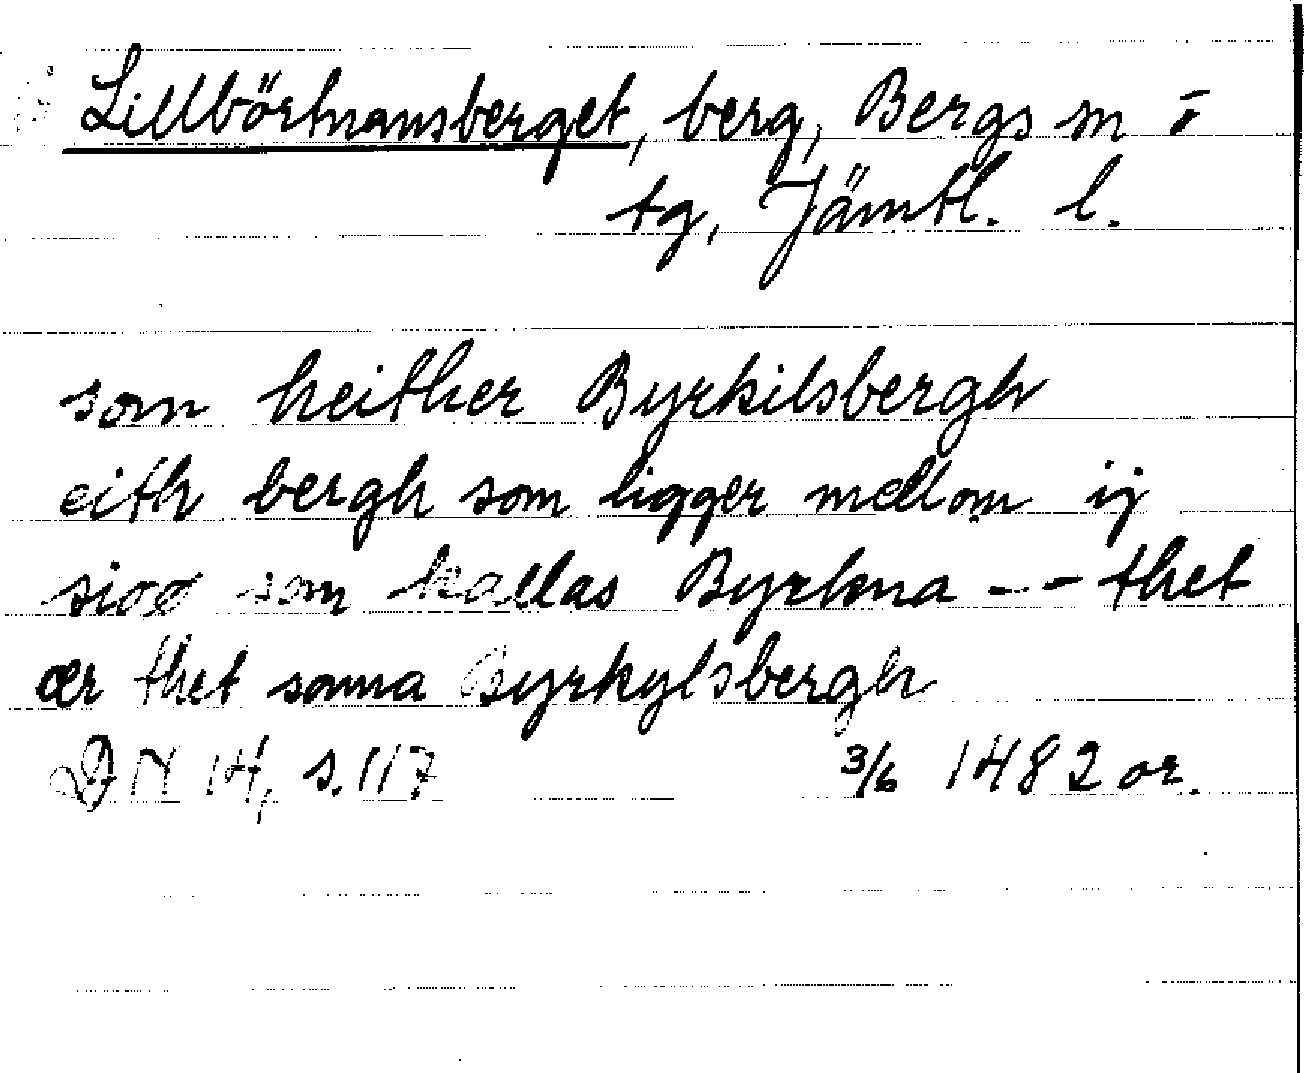 Lillbörtnansberget, berg, Bergs sn o
tg, Jämtl. l.
som heither Byrkilsbergh
eith bergh som ligger mellom ij
sioo som kallas Byrkna -- thet
ær thet sama Byrkylsbergh
DN 14, s. 117 3/6 1482 or.